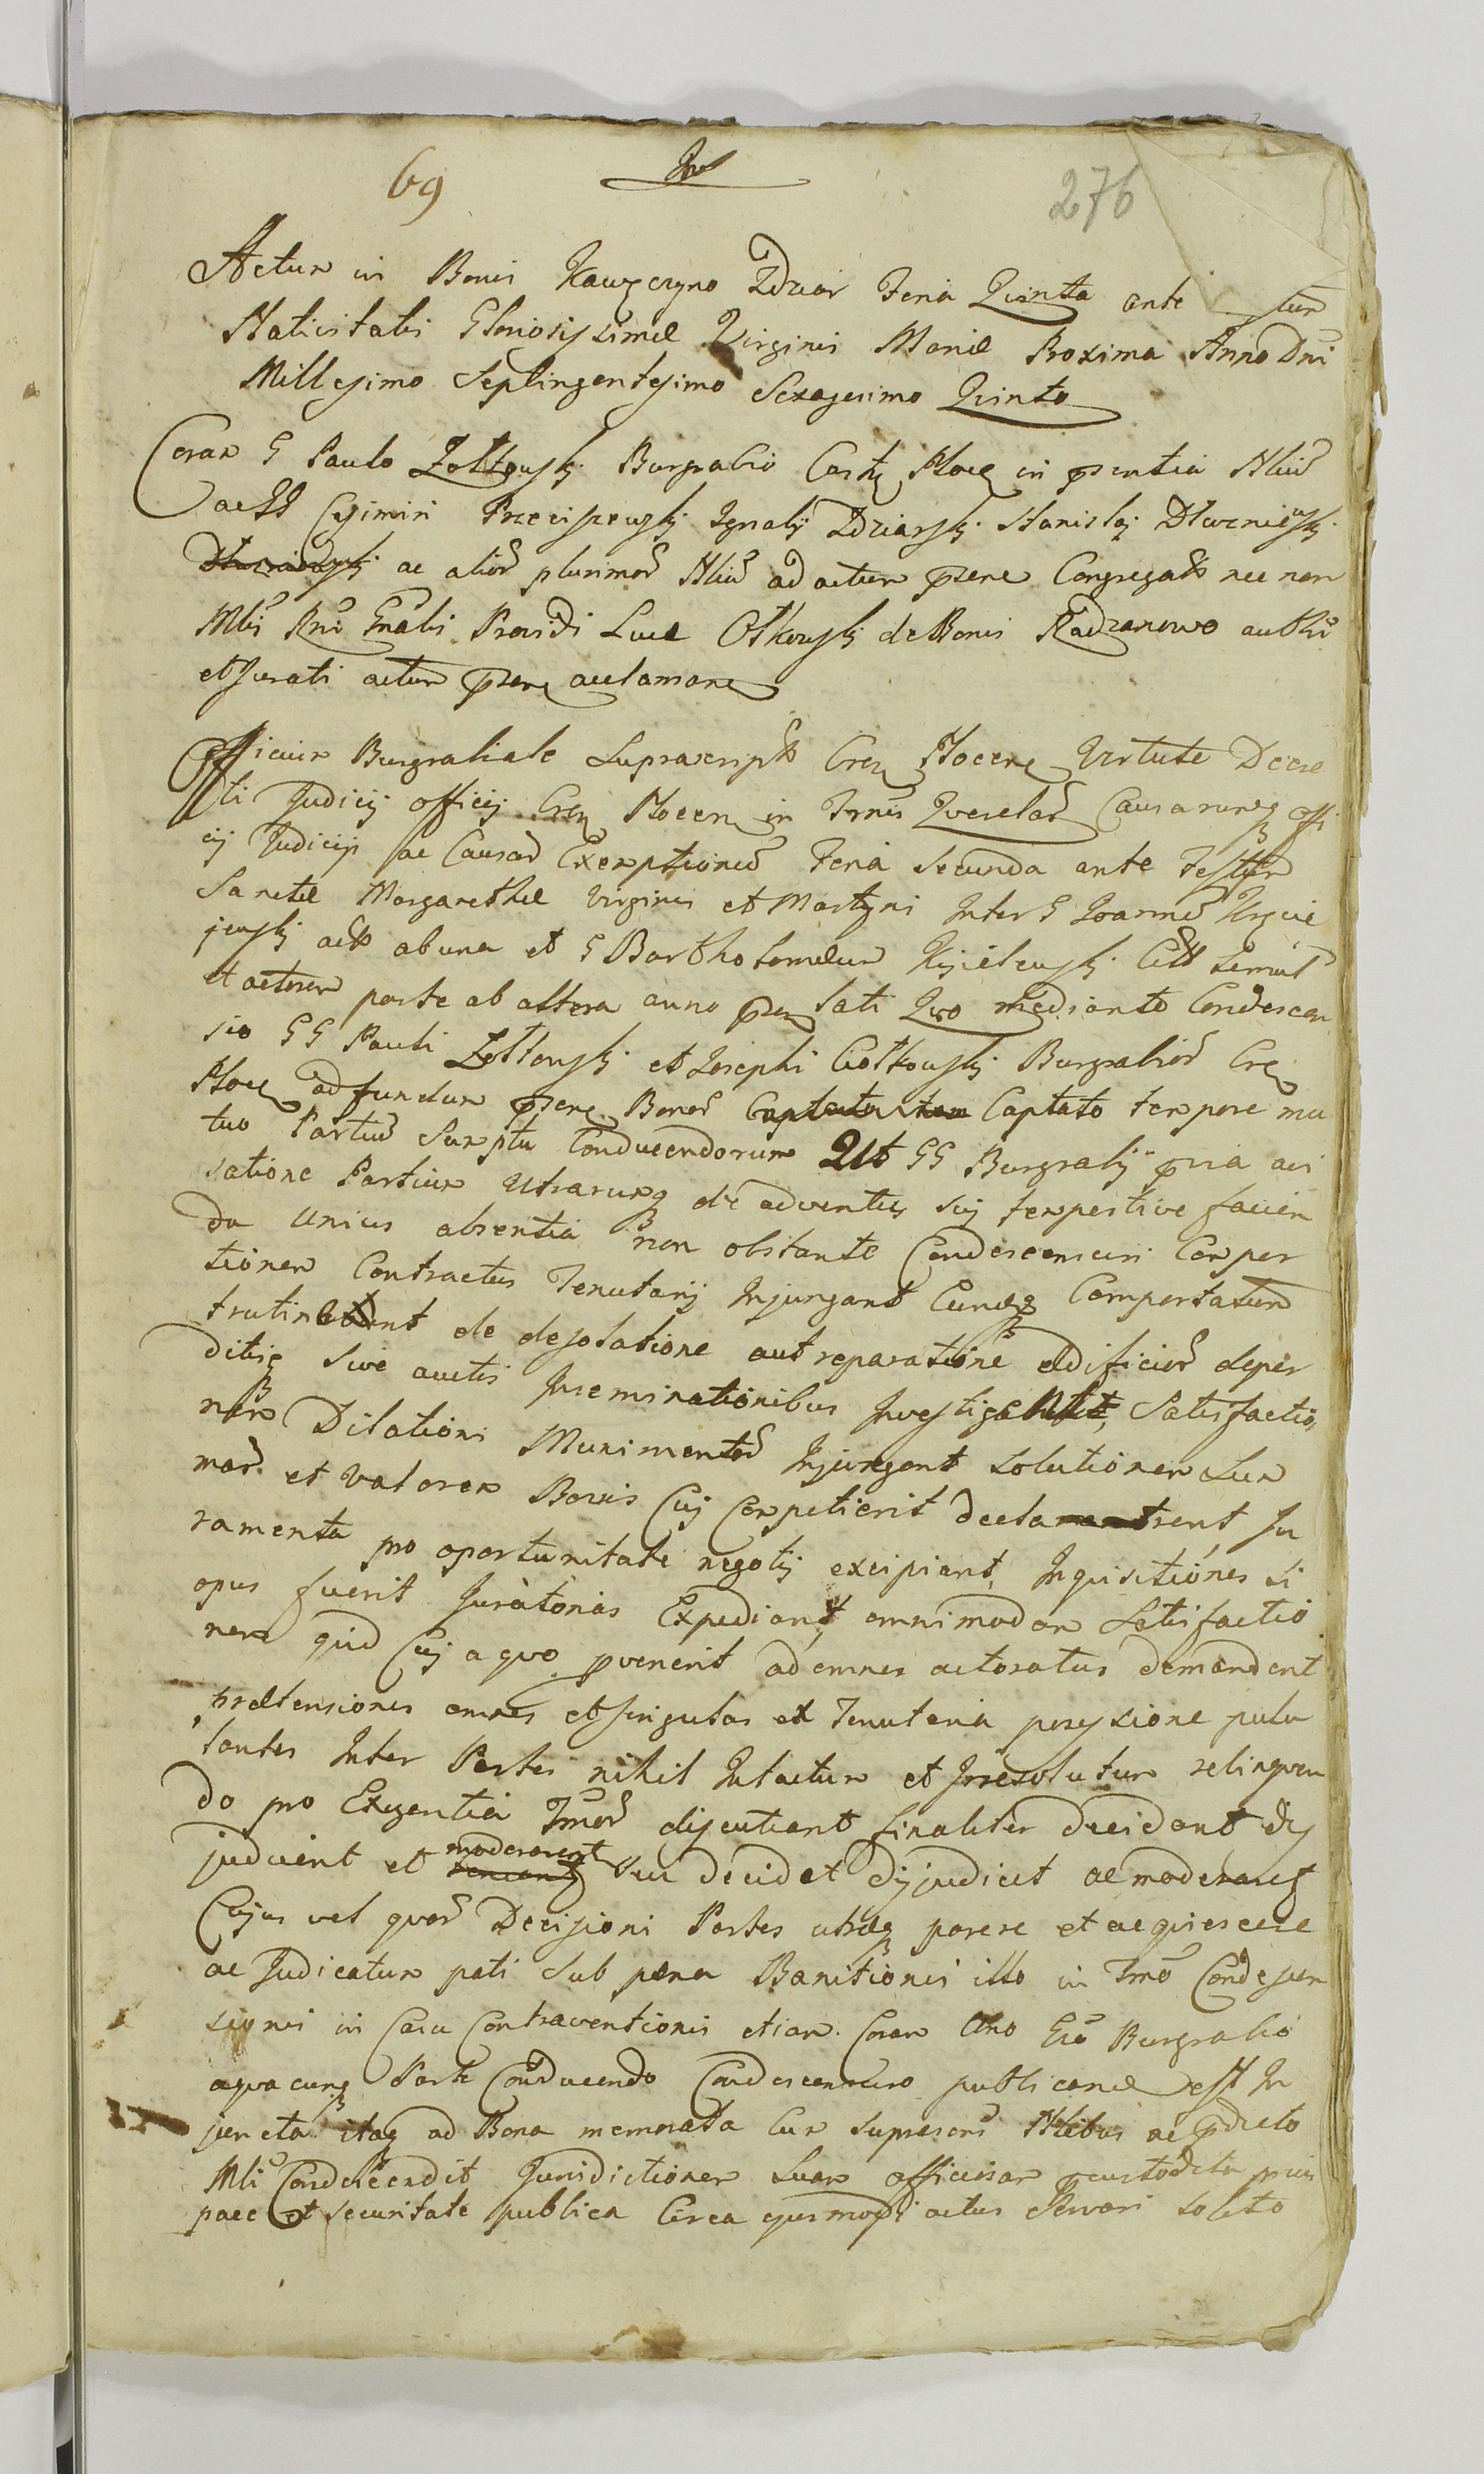 69
276
Actum in Bonis Kawęczyno Zdziar Feria Quinta ante
Natiuitatis Gloriosissimæ Virginis Mariæ Proxima Anno Dni
Millesimo Septingentesimo Sexagesimo Quinto
Coram G Paulo Żołtowski Burgrabio Castr Ploc in psentia Nliū
ac GG Casimiri Przeciszewski Ignatÿ Zdziarski Stanislai Dłuzniewski
ac alior plurimor Nliū ad actum psene Congregat nec non
Mlis Rni Gnalis Providi Lucæ Otkowski de Bonis Radzanowo authi
et Jurati actum psen acclaman
Officium Burgrabiale Suprascript Cren Plocen Virtute Decre
ti Judicÿ officÿ Cren Plocen in Trnis Querelar Causarumq offi
cÿ Judicÿ ac Causar Exemptionū Feria Secunda ante Festum
Sanctæ Margarethæ Virginis et Martyris Inter G Joannem
jewski act ab una et G Bartholomæum Kisielewski Citt Simul
et actorem parte ab altera anno psen lati Quo mediante Condescen
sio GG Pauli Żołtowski et Josephi Ciołkowski Burgrabior Cren
Ploc ad fundum psene Bonor Captato tempore mu
tuo Partiū Sumptu Conducendorum Ut GG Burgrabÿ pvia avi
satione Partium Utrarumq de adventu sui tempestive facien
da Unius absentia non obstante Condescensuri Compor
tionem Contractus Tenutarÿ Injungant Eundq Comportatum
trutinent de desolatione aut reparatione ædificior deper
ditisq sive auctis Inseminationibus Investigent, Satisfactio
nem Dilationi Munimentor Injungant solutionem Sum
mar et Valorem Bonis Cuj Competierit declarent Ju
ramenta pro oportunitate negotÿ excipiant Inquisitiones si
opus fuerit Juratorias Expediant omnimodam Satisfactio
nem quid Cuj a quo pvenerit ad omnes actoratus demandent
prætensiones omnes et singulas ex Tenutaria possessione pulu
lantes Inter Partes nihil Intactum et Irresolutum relinquen
do pro Exigentia Tmor discutiant finaliter decidant dÿ
judicent et moderarent seu decidet dijudicet ac moderaret
Cujus vel quor Decisioni Partes utræq parere et acquiescere
ac Judicatum pati Sub pæna Banitionis illo in Tmō Condescen
sionis in Casu Contraventionis etiam Coram Uno Eiō Burgrabio
a quacunq Parte Conducendo Condescensuro publicandæ est In
juncta itaq ad Bona memorata Cum Suprascri Nlibus ac pdicto
Mli Condescendit Jurisdictionem Suam officiosam custodita prius
pace et securitate publica Circa ejusmodi actus Servari solito